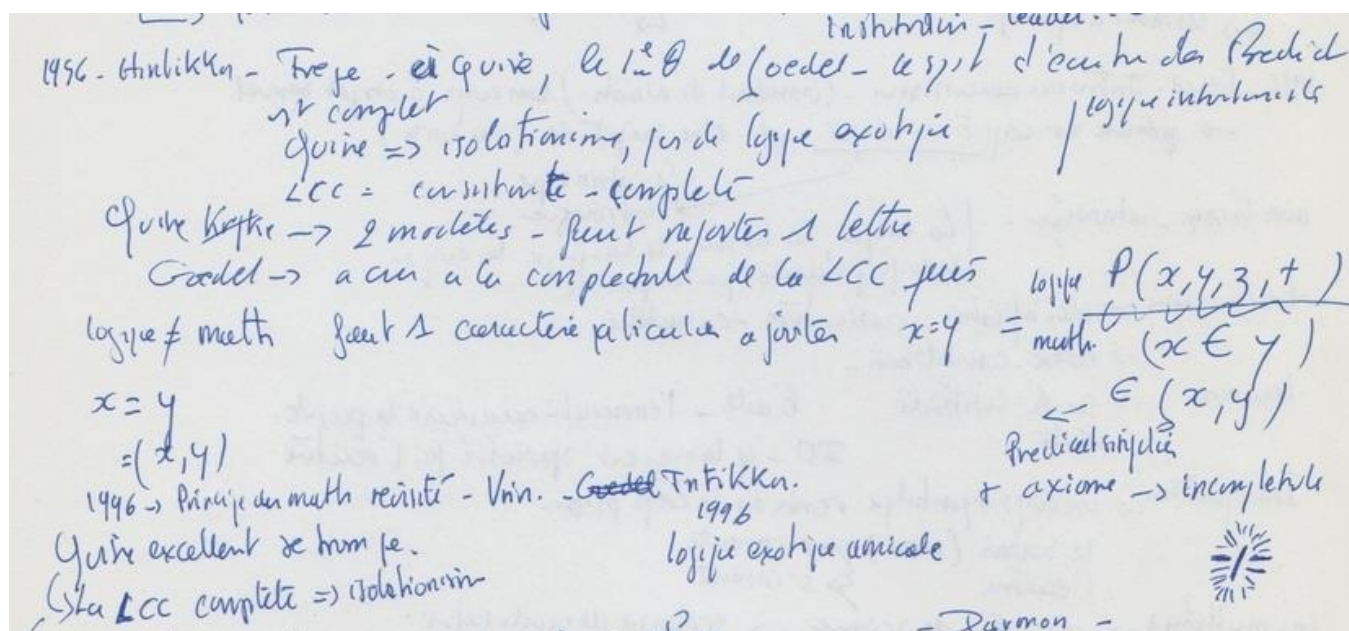 institution - leader.
1996 - Hintikka - Frege - et Quine, le 1er θ de Goedel - le syst d'écriture des Predicat
est complet
logique intentionnelle
Quine => isolationisme, pas de logique exotique
LCC = consistante - complète
Quine Kripke -> 2 modèles - peut rajouter 1 lettre
Goedel -> a cru a la complétude de la LCC puis
logique P(x, y, z, t)
logique ≠ math faut 1 caractère particulier ajouter x = y = math (x ∈ y)
x = y
∈ (x, y)
= (x, y)
Predicat singulier
1996 -> Principe des math revisité - Vrin. - Goedel Intikka.
1996
+ axiome -> incomplétude
Quine excellent se trompe.
logique exotique amicale
La LCC complète => isolationisme
- Darmon -